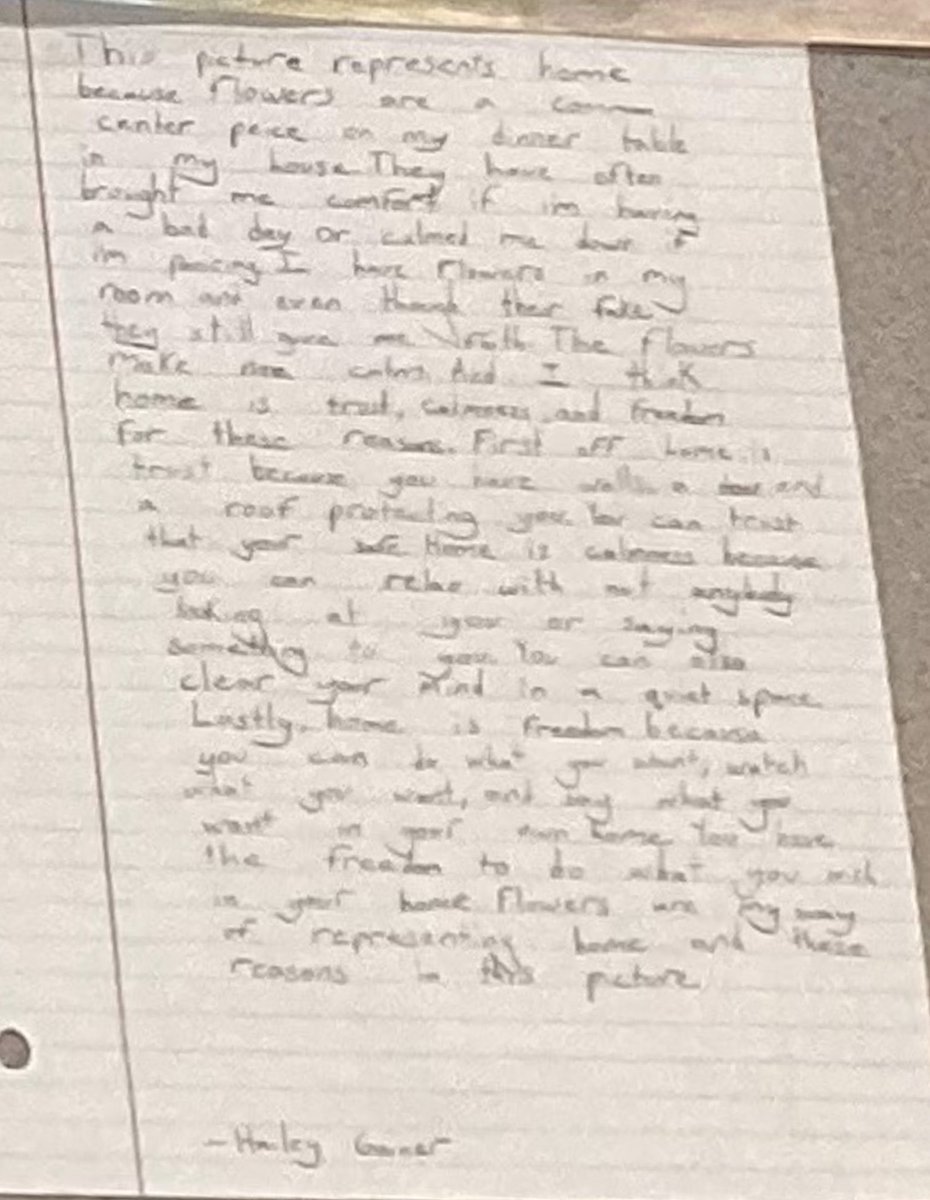 This picture represents home
because flowers are a
center peice on my dinner table
in my house. They have often
brought me comfort if im having
a bad day or calmed me down if
im I have flowers in my
room and even though their fake
they still gave me The flowers
make me calm. And I think
home is trust, calmness, and freedom
for these reasons. First off home is
trust because you have walls a and
a roof protecting you. You can trust
that your safe. Home is calmness because
you can relax with out anybody
looking at you or saying
something to you. You can also
clear your mind in a quiet space.
Lastly, home is freedom because
you can do what you want, watch
what you want, and what you
want in your own home. You have
the freedom to do what you wish
in your home. Flowers are my way
of representing home and these
reasons in this picture
- Hailey